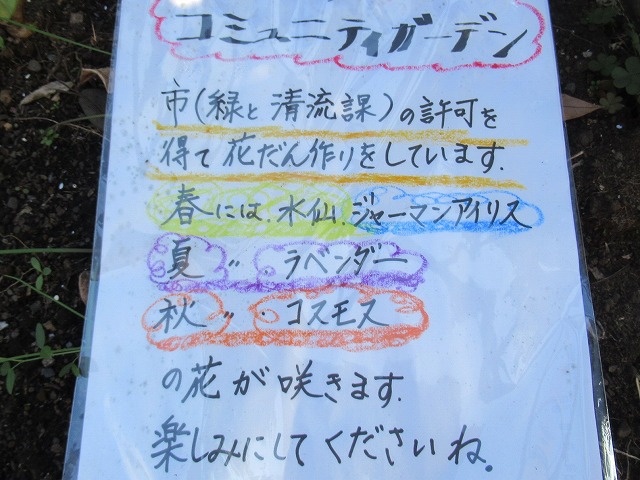 コミュニティガーデン
市(緑と清流課)の許可を
得て花だん作りをしています.
春には.水仙.ジャーマンアイリス
夏 〃 ラベンダー
秋 〃・コスモス
の花が咲きます.
楽しみにしてくださいね.